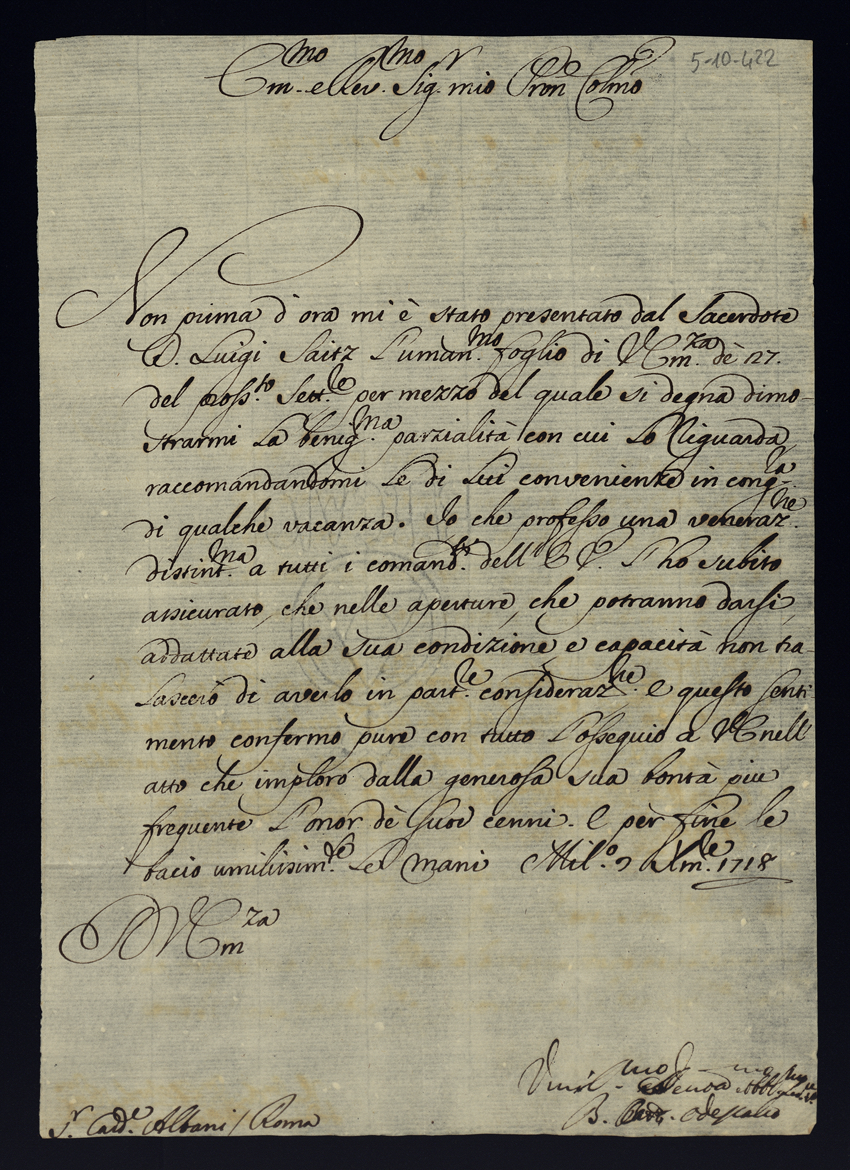 5-10-422
Em.mo e Rev.mo Sig.r mio Pron.e Colmo
Non prima d'ora mi è stato presentato dal Sacerdote
D. Luigi Saitz l'uman.mo foglio di V Em.za dè 27.
del pross.to Sett.le per mezzo del quale si degna dimo-
strarmi la benig.ma parzialità con cui lo riguarda
raccomandandomi le di lui convenienze in cong.ra
di qualche vacanza. Io che professo una veneraz.ne
distint.ma a tutti i comand.ti dell' E V. l'ho subito
assicurato, che nelle aperture, che potranno darsi
addattate alla sua condizione e capacità non tra-
lascerò di averlo in part.re consideraz.ne e questo senti-
mento confermo pure con tutto l'ossequio a VE nell
atto che imploro dalla generosa sua bontà piu
frequente l'onor dè suoi cenni. E per fine le
bacio umilissim.te le mani Mil.o 9 Xm.re 1718
D V Em.za
S.r Card.le Albani / Roma
B. Card. Odescalco